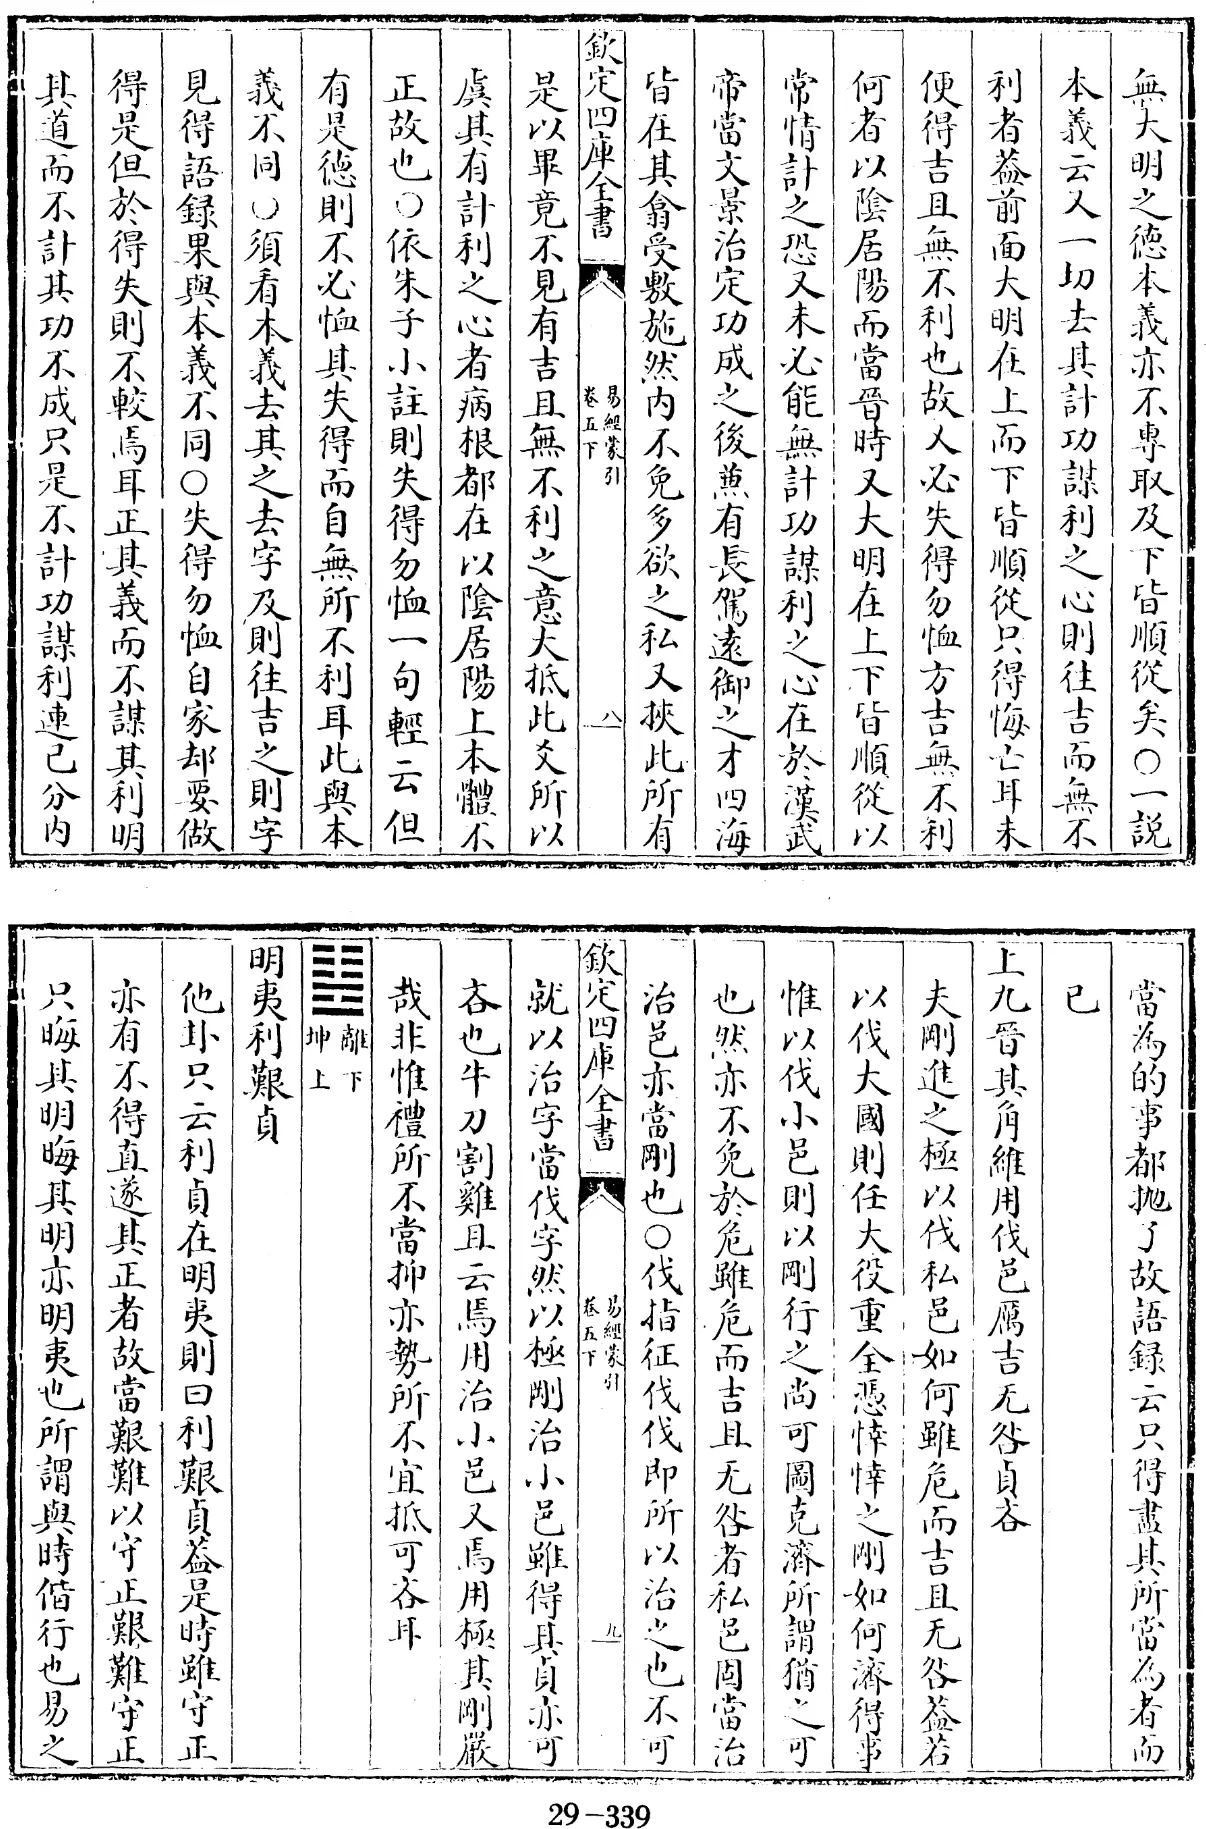 無大明之德本義亦不專取及下皆順從矣○一說
本義云又一切去其計功謀利之心則往吉而無不
利者葢前面大明在上而下皆順從只得悔亡耳未
便得吉且無不利也故又必失得勿恤方吉無不利
何者以陰居陽而當晉時又大明在上下皆順從以
常情計之恐又未必能無計功謀利之心在於漢武
帝當文景治定功成之後蕉有長駕遠御之才四海
皆在其翕受敷施然内不免多欲之私又挾此所有
欽定四庫全書
易經蒙引
卷五下
八
是以畢竟不見有吉且無不利之意大抵此爻所以
虞其有計利之心者病根都在以陰居陽上本體不
正故也○依朱子小註則失得勿恤一句輕云但
有是德則不必恤其失得而自無所不利耳此與本
義不同○須看本義去其之去字及則往吉之則字
見得語録果與本義不同○失得勿恤自家却要做
得是但於得失則不較焉耳正其義而不謀其利明
其道而不計其功不成只是不計功謀利連己分内
當為的事都抛了故語録云只得盡其所當為者而
已
上九晉其角維用伐邑厲吉无咎貞吝
夫剛進之極以伐私邑如何雖危而吉且无咎葢若
以伐大國則任大役重全憑悻悻之剛如何濟得事
惟以伐小邑則以剛行之尚可圖克濟所謂猶之可
也然亦不免於危雖危而吉且无咎者私邑固當治
治邑亦當剛也○伐指征伐伐即所以治之也不可
欽定四庫全書
易經蒙引
卷五下
九
就以治字當伐字然以極剛治小邑雖得其貞亦可
吝也牛刀割雞且云焉用治小邑又焉用極其剛嚴
哉非惟禮所不當抑亦勢所不宜抵可吝耳
䷣
離下
坤上
明夷利艱貞
他卦只云利貞在明夷則曰利艱貞葢是時雖守正
亦有不得直遂其正者故當艱難以守正艱難守正
只晦其明晦其明亦明夷也所謂與時偕行也易之
29-339